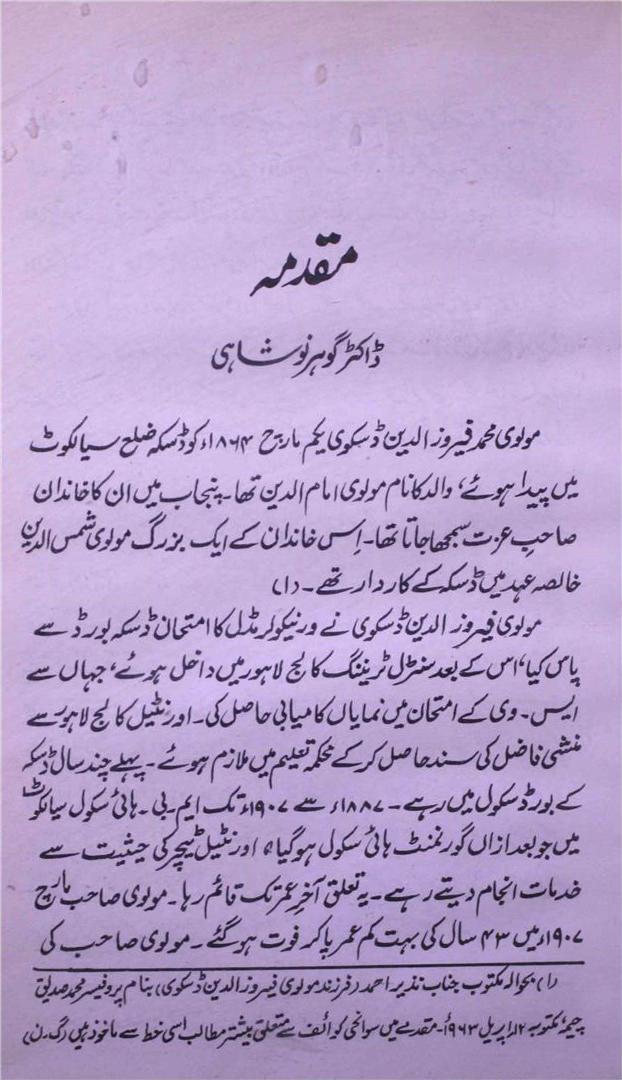 مقدمہ
ڈاکٹر گوہر نوشاہی
مولوی محمد فیروز الدین ڈسکوی یکم مارچ ۱۸۶۴ء کو ڈسکہ ضلع سیالکوٹ
میں پیدا ہوئے، والد کا نام مولوی امام الدین تھا۔ پنجاب میں ان کا خاندان
صاحبِ عزت سمجھا جاتا تھا۔ اِس خاندان کے ایک بزرگ مولوی شمس الدین
خالصہ عہد میں ڈسکہ کے کاردار تھے۔ (۱)
مولوی فیروز الدین ڈسکوی نے ورنیکولر مڈل کا امتحان ڈسکہ بورڈ سے
پاس کیا، اس کے بعد سنٹرل ٹریننگ کالج لاہور میں داخل ہوئے، جہاں سے
ایس۔ وی کے امتحان میں نمایاں کامیابی حاصل کی۔ اورنٹیل کالج لاہور سے
منشی فاضل کی سند حاصل کر کے محکمہ تعلیم میں ملازم ہوئے۔ پہلے چند سال ڈسکہ
کے بورڈ سکول میں رہے۔ ۱۸۸۷ء سے ۱۹۰۷ء تک ایم۔ بی۔ ہائی سکول سیالکوٹ
میں جو بعد ازاں گورنمنٹ ہائی سکول ہو گیا، اورنٹیل ٹیچر کی حیثیت سے
خدمات انجام دیتے رہے۔ یہ تعلق آخرِ عمر تک قائم رہا۔ مولوی صاحب مارچ
۱۹۰۷ء میں ۴۳ سال کی بہت کم عمر پا کر فوت ہو گئے۔ مولوی صاحب کی
(۱) بحوالہ مکتوب جناب نذیر احمد (فرزند مولوی فیروز الدین ڈسکوی) بنام پروفیسر محمد صدیق
چیمہ مکتوبہ ۱۲ اپریل ۱۹۶۳ء۔ مقدمے میں سوانحی کوائف سے متعلق بیشتر مطالب اسی خط سے ماخوذ ہیں (گ۔ن)